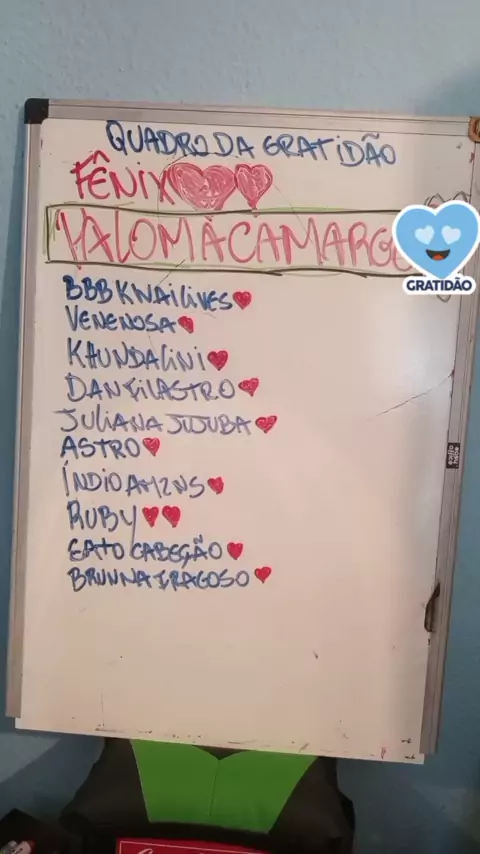 QUADRO DA GRATIDÃO
FÊNIX
PALOMA CAMARGO
GRATIDÃO
BBB KWAI LIVES
VENENOSA
KHUNDALINI
DANFILASTRO
JULIANA JUJUBA
ASTRO
ÍNDIO
RUBY
GATO CABEÇÃO
BRUNNA FRAGOSO